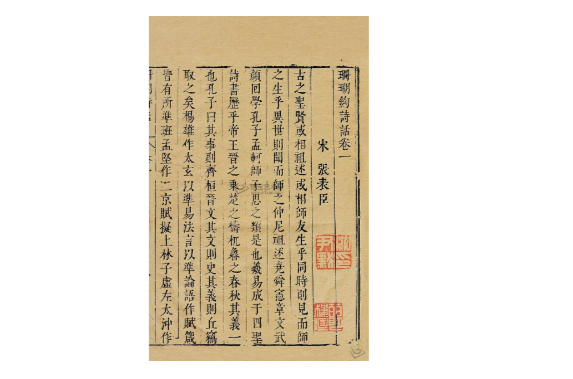 珊瑚鉤詩話卷一
宋 張表臣
古之聖賢或相祖述或相師友生乎同時則見而師
之生乎異世則聞而師之仲尼祖述堯舜憲章文武
顔回學孔子孟軻師子思之類是也羲易成于四聖
詩書歷乎帝王晉之乘楚之檮杌魯之春秋其義一
也孔子曰其事則齊桓晉文其文則史其義則丘竊
取之矣楊雄作太玄以準易法言以準論語作賦箴
皆有所準班孟堅作二京賦擬上林子虛左太沖作